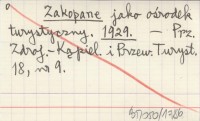 Zakopane jako ośrodek
turystyczny. 1929. — Prz.
Zdroj.-Kąpiel. i Przew. Turyst.
18, nr 9.